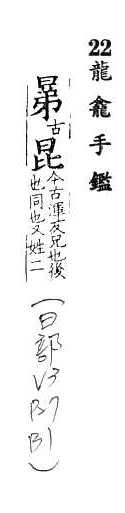 22 龍龕手鑑
𣇄古昆今古渾反兄也後
也同也又姓二
(日部
V3
P.7
B1)